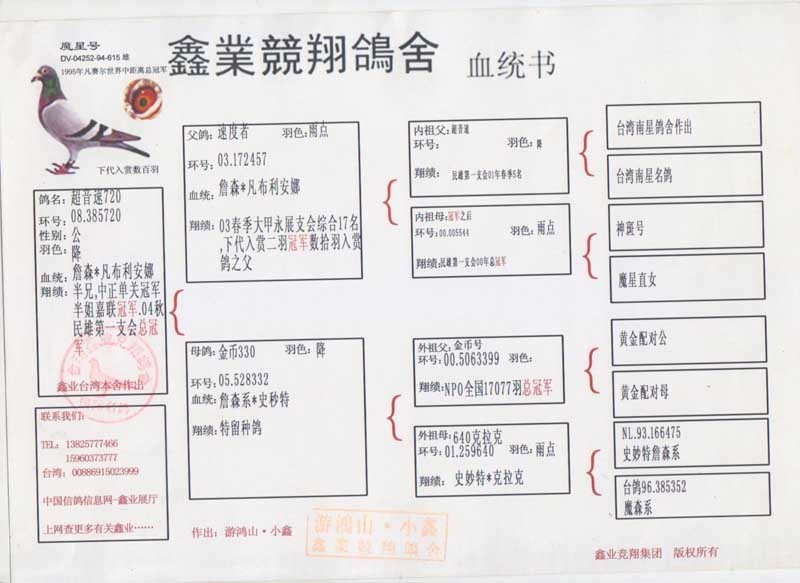 魔星号
DV-04252-94-615 雄
1995年凡赛尔世界中距离总冠军
下代入赏数百羽
鑫業競翔鴿舍 血统书
鸽名：超音速720
环号：08.385720
性别：公
羽色：降
血统：詹森*凡布利安娜
翔绩：半兄，中正单关冠军
半姐嘉联冠军.04秋
民雄第一支会总冠
军
鑫业台湾本舍作出
联系我们：
TEL： 13825777466
15960373777
台湾：00886915023999
中国信鸽信息网-鑫业展厅
上网查更多有关鑫业……
父鸽：速度者 羽色：雨点
环号：03.172457
血统：詹森*凡布利安娜
翔绩：03春季大甲永展支会综合17名
,下代入赏二羽冠军数拾羽入赏
鸽之父
母鸽：金币330 羽色：降
环号：05.528332
血统：詹森系*史秒特
翔绩：特留种鸽
内祖父：超音速
环号： 羽色：降
翔绩：民雄第一支会01年春季5名
内祖母：冠军之后
环号：00.005544 羽色：雨点
翔绩：民雄第一支会00年总冠军
外祖父：金币号
环号：00.5063399 羽色：
翔绩：NPO全国17077羽总冠军
外祖母：640克拉克
环号：01.259640 羽色：雨点
翔绩： 史妙特*克拉克
台湾南星鸽舍作出
台湾南星名鸽
神斑号
魔星直女
黄金配对公
黄金配对母
NL.93.166475
史妙特詹森系
台鸽96.385352
魔森系
作出：游鸿山·小鑫
游鸿山·小鑫
鑫業競翔鴿舍
鑫业竞翔集团 版权所有